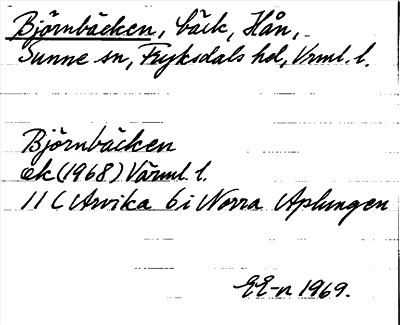 Björnbäcken, bäck, Hån,
Sunne sn, Fryksdals hd, Vrml. l.
Björnbäcken
ek (1968) Värml. l.
11 C Arvika 6 i Norra Aplungen
EE-n 1969.